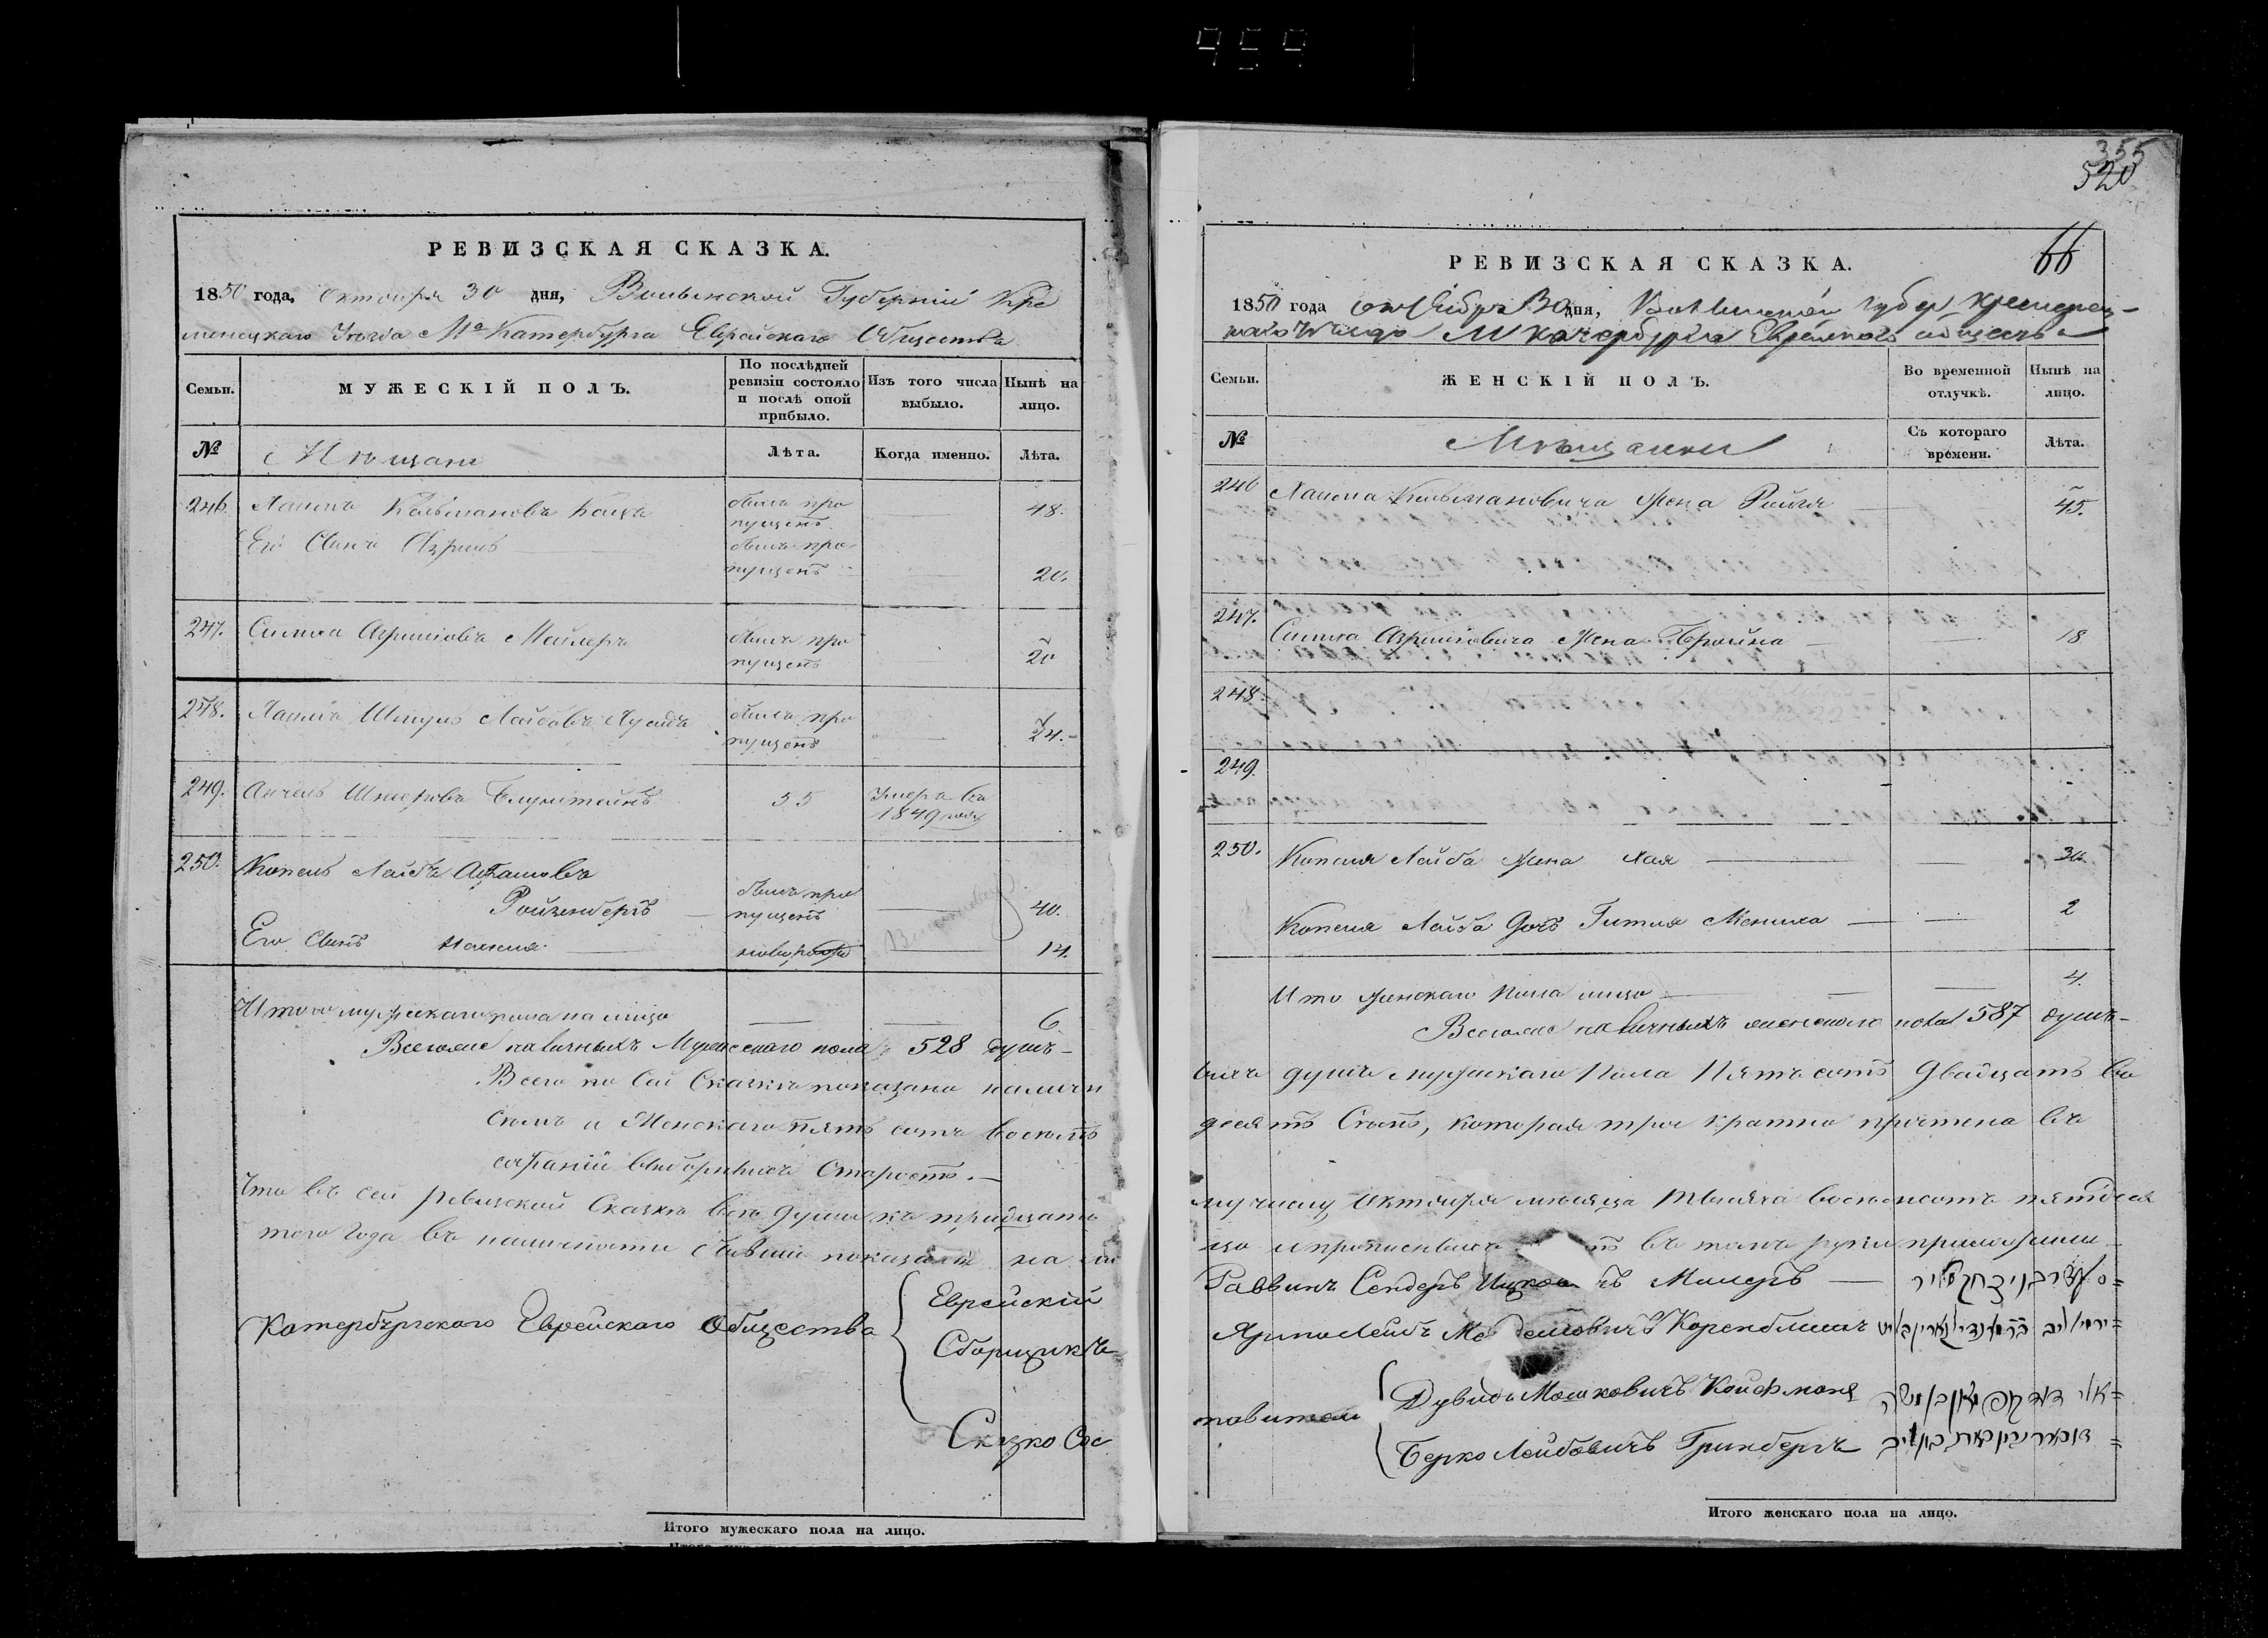 959
РЕВИЗСКАЯ СКАЗКА.
1850 года, Октября 30 дня, Волынской Губерніи Кре
менецкаго Уезда Мᵃ Катербурга Еврейскаго Общества
Семьи.
МУЖЕСКІЙ ПОЛЪ.
По послѣдней ревизіи состояло и послѣ оной прибыло.
Изъ того числа выбыло.
Нынѣ на лицо.
№
Мѣщане
Лѣта.
Когда именно.
Лѣта.
246. Хаимъ Кельмановъ Кацъ былъ про пущенъ 48.
Его Сынъ Азриль былъ про пущенъ 20.
247. Симха Азриліовъ Мейлеръ былъ про пущенъ 20
248. Хаимъ Шмуль Лейбовъ былъ про пущенъ 24.
249. Анчель Шмеровъ Блумштейнъ 35 Умеръ въ 1849 годѣ
250. Копель Лейбъ Абрамовъ
Ройзенбергъ былъ про пущенъ 40.
Его Сынъ 14.
Итого мужескаго пола на лицо 6.
Всего же наличныхъ Мужескаго пола 528 душъ
Всего по Сей Сказкѣ показано наличн
семь и Женскаго пять сотъ восемь
собраніи выборныхъ Старостъ.
Что въ сей ревизской Сказкѣ всѣ души къ тридцато
того года въ наличности бывшіе показаны на ли
Катербургскаго Еврейскаго Общества
Еврейскій
Сборщикъ
Сказко Сос
355
520
66
РЕВИЗСКАЯ СКАЗКА.
1850 года октября 30 дня, Волынской губер Кременец-
каго уезда М Катербурга Еврейскаго общества
Семьи.
ЖЕНСКІЙ ПОЛЪ.
Во временной отлучкѣ.
Нынѣ на лицо.
№
Мѣщанки
Съ котораго времени.
Лѣта.
246 Хаима Кельмановича жена Рейзя 45.
247. Симха Азриліовича жена Бройна 18
248.
249.
250. Копеля Лейба жена Хая 30
Копеля Лейба дочь Гитля 2
Ито женскаго пола лицо 4.
Всего же наличныхъ женскаго пола 587 душъ
ныхъ душъ мужескаго пола Пять сотъ двадцать во
десятъ семь, которая трое кратно прочтена въ
му числу Октября месяца тысяча восемьсотъ пятдеся
цо и прописныхъ въ томъ руки приложили
Раввинъ Сендеръ Ицковичъ Милеръ
Ярмо Лейбъ Корекблитъ
тавители
Дувидъ Мошковичъ Койфманъ
Берко Лейбовичъ Гринбергъ
Итого мужескаго пола на лицо.
Итого женскаго пола на лицо.